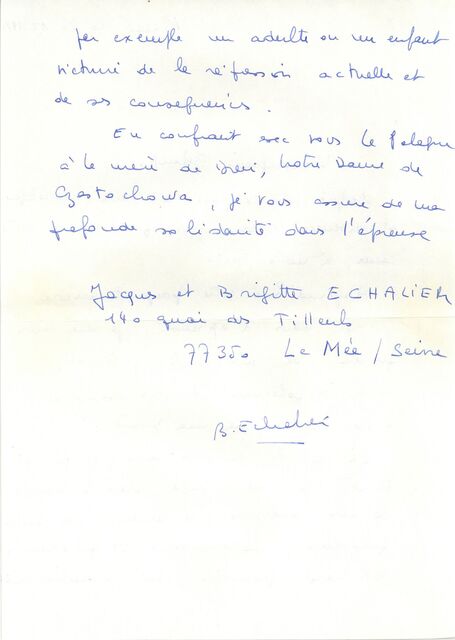 par exemple un adulte ou un enfant
victime de la répression actuelle et
de ses conséquences.
En confiant avec vous la Pologne
à la mère de Dieu, Notre Dame de
Czestochowa, je vous assure de ma
profonde solidarité dans l'épreuve
Jacques et Brigitte ECHALIER
140 quai des Tilleuls
77350 Le Mée / Seine
B. Echalier